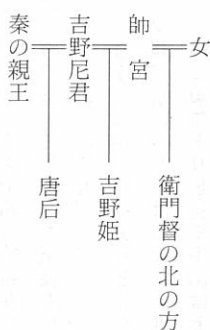 女
帥宮
吉野尼君
秦の親王
衛門督の北の方
吉野姫
唐后